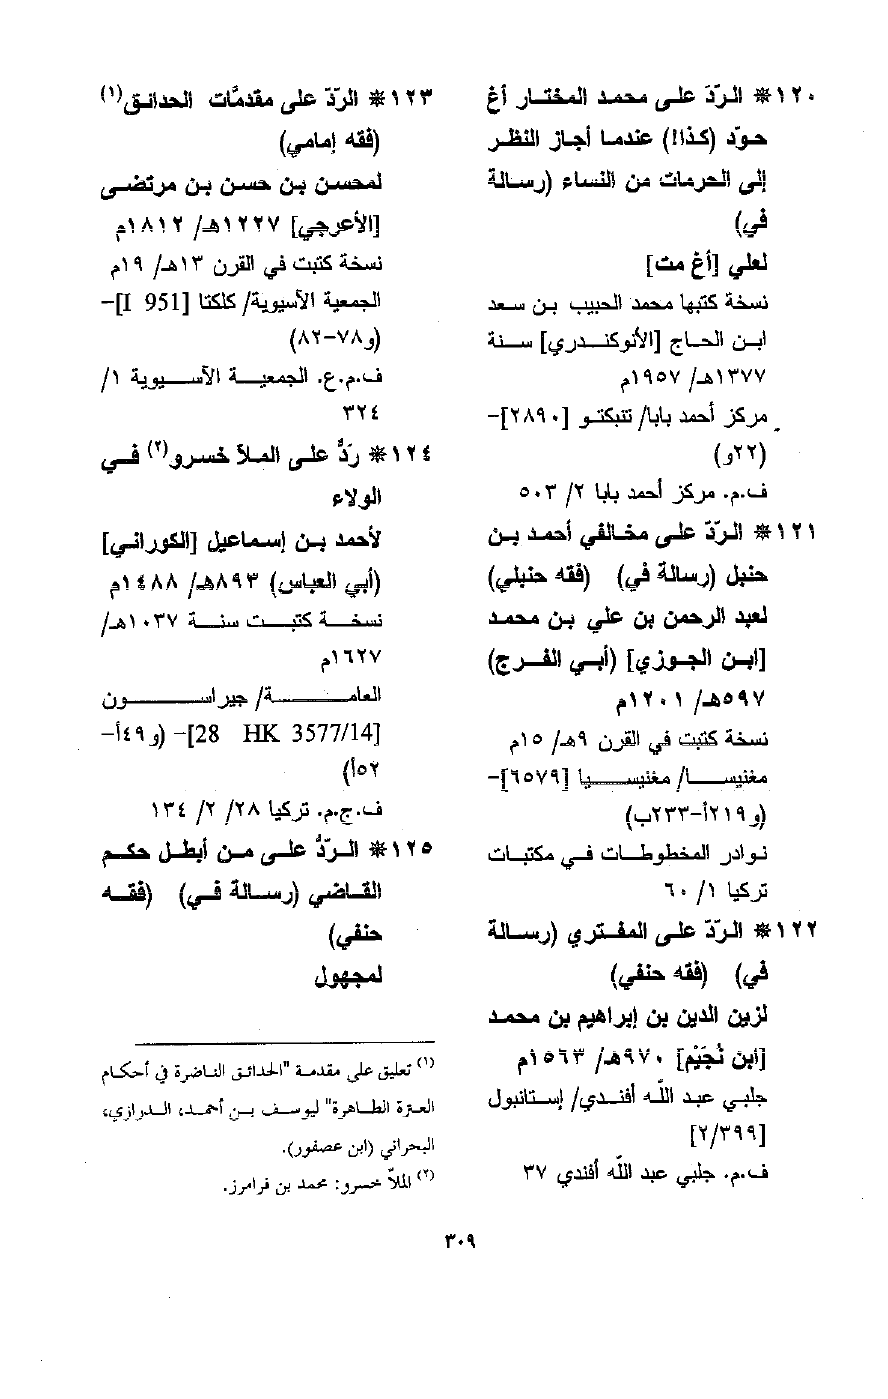 ١٢٠* الردّ على محمد المختار أغ
حودّ (كذا!) عندما أجاز النظر
إلى الحرمات من النساء (رسالة
في)
لعلي [أغ مت]
نسخة كتبها محمد الحبيب بن سعد
ابن الحاج [الأنوكندري] سنة
١٣٧٧هـ/ ١٩٥٧م
مركز أحمد بابا/ تنبكتو [٢٨٩٠]-
(٢٢و)
ف.م. مركز أحمد بابا ٢/ ٥٠٣
١٢١* الردّ على مخالفي أحمد بن
حنبل (رسالة في) (فقه حنبلي)
لعبد الرحمن بن علي بن محمد
[ابن الجوزي] (أبي الفرج)
٥٩٧هـ/ ١٢٠١م
نسخة كتبت في القرن ٩هـ/ ١٥م
مغنيسا/ مغنيسيا [٦٥٧٩]-
(و٢١٩أ-٢٣٣ب)
نوادر المخطوطات في مكتبات
تركيا ١/ ٦٠
١٢٢* الردّ على المفتري (رسالة
في) (فقه حنفي)
لزين الدين بن إبراهيم بن محمد
[ابن نُجَيْم] ٩٧٠هـ/ ١٥٦٣م
جلبي عبد اللّه أفندي/ إستانبول
[٢/٣٩٩]
ف.م. جلبي عبد اللّه أفندي ٣٧
١٢٣* الردّ على مقدمَّات الحدائق(١)
(فقه إمامي)
لمحسن بن حسن بن مرتضى
[الأعرجي] ١٢٢٧هـ/ ١٨١٢م
نسخة كتبت في القرن ١٣هـ/ ١٩م
الجمعية الآسيوية/ كلكتا [I 951]-
(و٧٨-٨٢)
ف.م.ع. الجمعية الآسيوية ١/
٣٢٤
١٢٤* ردٌّ على الملاّ خسرو(٢) في
الولاء
لأحمد بن إسماعيل [الكوراني]
(أبي العباس) ٨٩٣هـ/ ١٤٨٨م
نسخة كتبت سنة ١٠٣٧هـ/
١٦٢٧م
العامة/ جيراسون
[28 HK 3577/14]- (و٤٩أ-
٥٢أ)
ف.ج.م. تركيا ٢٨/ ٢/ ١٣٤
١٢٥* الردُّ على من أبطل حكم
القاضي (رسالة في) (فقه
حنفي)
لمجهول
(١) تعليق على مقدمة "الحدائق الناضرة في أحكام
العترة الطاهرة" ليوسف بن أحمد، الدرازي،
البحراني (ابن عصفور).
(٢) الملاّ خسرو: محمد بن فرامرز.
٣٠٩